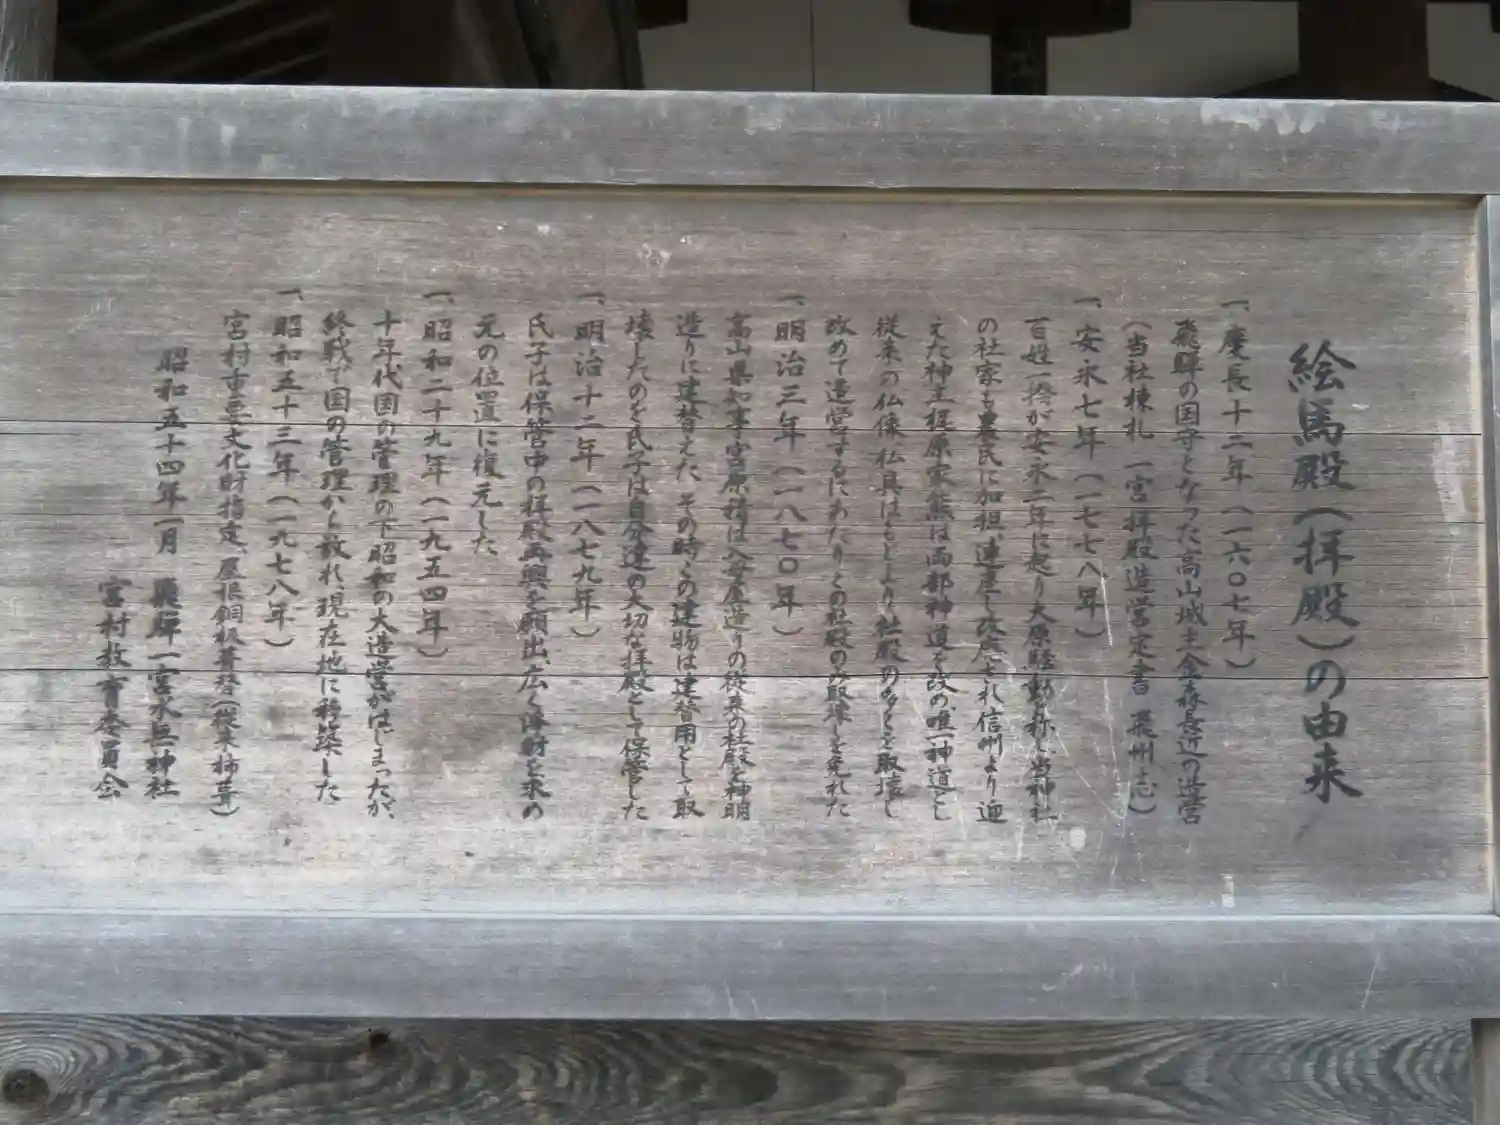 絵馬殿(拝殿)の由来
一、慶長十二年(一六〇七年)
飛騨の国守となった高山城主金森長近の造営
(当社棟札 一宮拝殿造営定書 飛州志)
一、安永七年(一七七八年)
百姓一揆が安永二年に起り大原騒動と称し当神社
の社家も農民に加担、連座し改廃され信州より迎
えた神主梶原家熊は両部神道を改め、唯一神道とし
従来の仏像仏具はもとより社殿の多くを取壊し
改めて造営するにあたりこの社殿のみ取壊しを免れた
一、明治三年(一八七〇年)
高山県知事宮原積は入母屋造りの従来の社殿を神明
造りに建替えた、その時この建物は建替用として取
壊したのを氏子は自分達の大切な拝殿として保管した
一、明治十二年(一八七九年)
氏子は保管中の拝殿再興を願出、広く浄財を求め
元の位置に復元した
一、昭和二十九年(一九五四年)
十年代国の管理の下昭和の大造営がはじまったが、
終戦で国の管理から放れ、現在地に移築した
一、昭和五十三年(一九七八年)
宮村重要文化財指定、屋根銅板葺替(従来柿葺)
昭和五十四年一月 飛騨一宮水無神社
宮村教育委員会